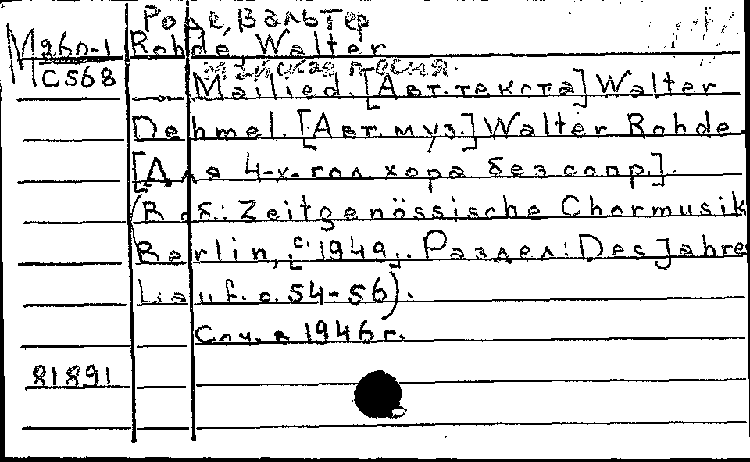 Роде, Вальтер
М260-1 Rohde Walter
С568 майская песня.
Mailied. [Авт. текста] Walter
Dehmel. [Авт. муз.] Walter Rohde
[Для 4-х. гол. хора без сопр.].
(В сб.: Zeitgenössische Chormusik
Berlin, [c. 1949]. Раздел: Des Jahre
Lauf. с. 54-56).
Соч. в 1946 г.
81891